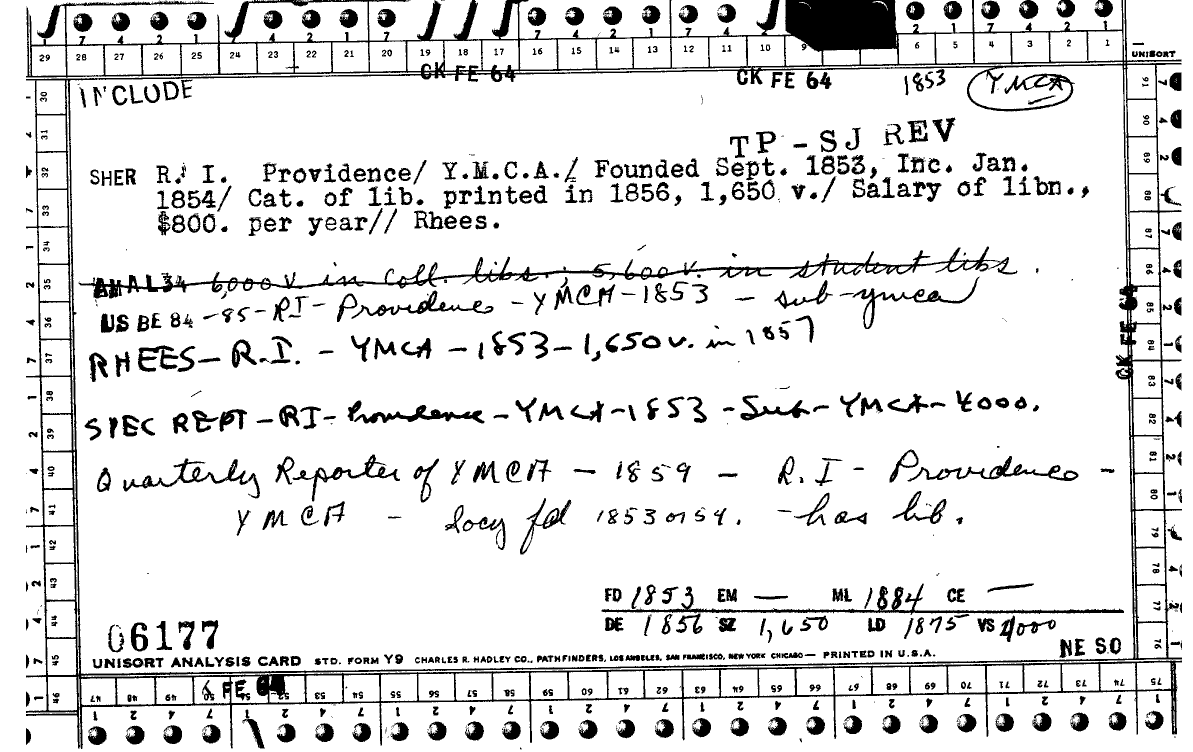 7 4 2 1 7 4 2 1 7 4 2 1 7 4 2 1 2 1 7 4 2 1
29 28 27 26 25 24 23 22 21 20 19 18 17 16 15 14 13 12 11 10 9 6 5 4 3 2 1 UNISORT
CK FE 64 CK FE 64 1853 YMCA
INCLUDE
TP - SJ REV
SHER R. I. Providence/ Y.M.C.A./ Founded Sept. 1853, Inc. Jan.
1854/ Cat. of lib. printed in 1856, 1,650 v./ Salary of libn.,
$800. per year// Rhees.
AMAL34 6,000 v. in coll. libs.; 5,600 v. in student libs.
US BE 84-85-RI-Providence-YMCA-1853 - sub-ymca
RHEES-R.I. - YMCA-1853-1,650v. in 1857
SPEC REPT-RI-Providence-YMCA-1853-Sub-YMCA-4000.
Quarterly Reporter of YMCA - 1859 - R.I - Providence -
YMCA - Socy fd 1853 or 54. - has lib.
FD 1853 EM — ML 1884 CE —
DE 1856 SZ 1,650 LD 1875 VS 4000
06177
NE SO
UNISORT ANALYSIS CARD STD. FORM Y9 CHARLES R. HADLEY CO., PATHFINDERS, LOS ANGELES, SAN FRANCISCO, NEW YORK CHICAGO — PRINTED IN U.S.A.
FE 64
47 48 49 50 53 54 55 56 57 58 59 60 61 62 63 64 65 66 67 68 69 70 71 72 73 74 75
1 2 4 7 1 2 4 7 1 2 4 7 1 2 4 7 1 2 4 7 1 2 4 7 1 2 4 7
30
31
32
33
34
35
36
37
38
39
40
41
42
43
44
45
46
91
90
89
88
87
86
85
84
83
82
81
80
79
78
77
76
CK FE 64